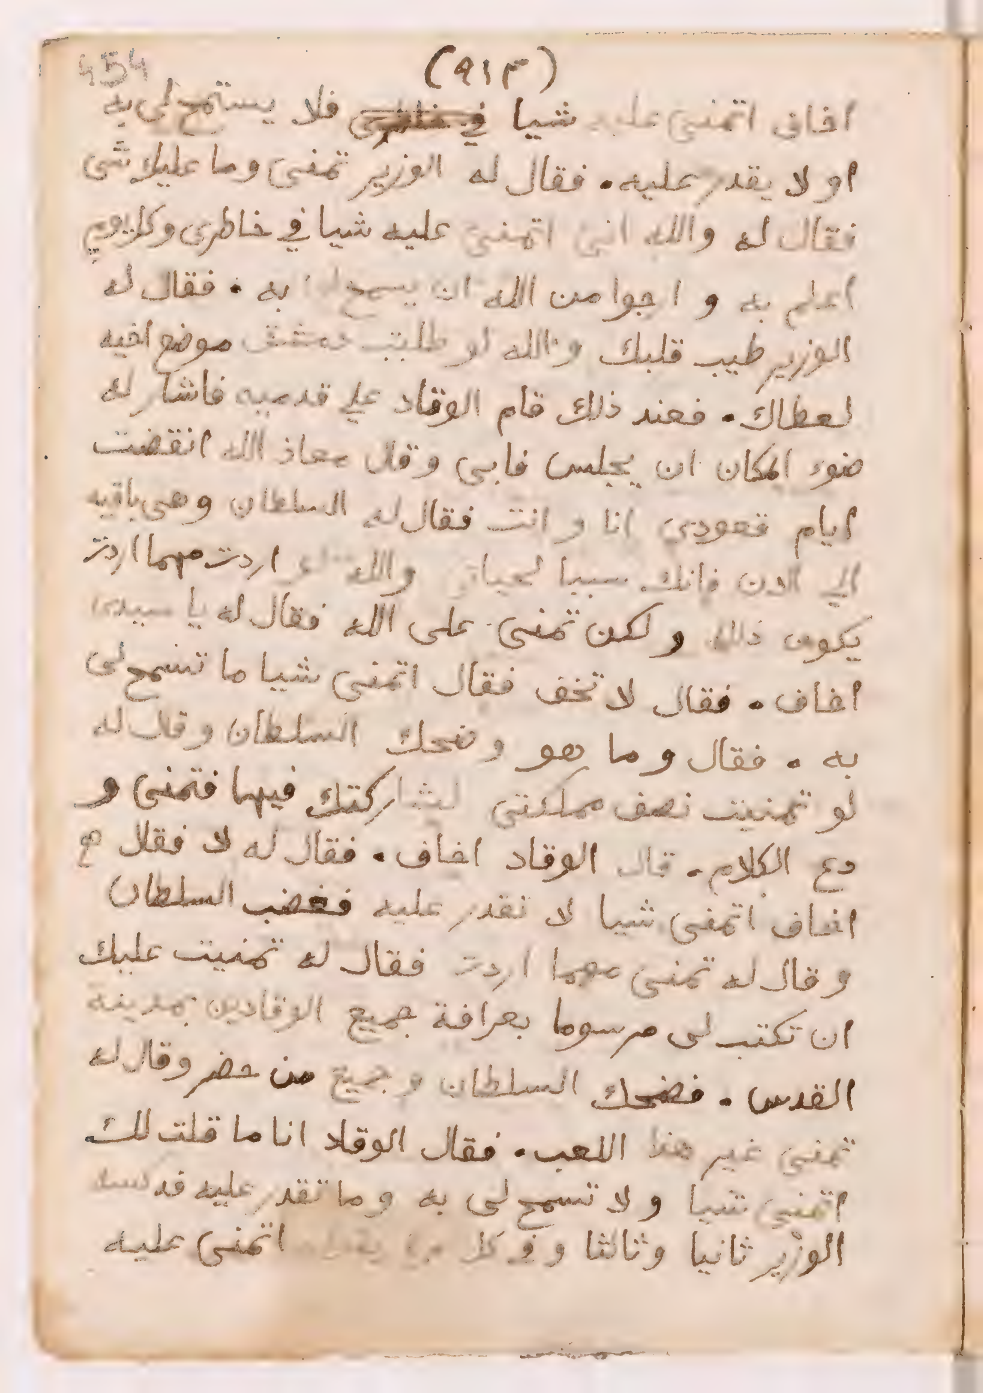 454
(٩١٣)
اخاف اتمنى عليه شيا في خاطري فلا يستمح لي به
او لا يقدر عليه . فقال له الوزير تمنى وما عليك شي
فقال له والله اني اتمنى عليه شيا في خاطري وكل يوم
اعلم به و ارجوا من الله ان يسمح لي به . فقال له
الوزير طيب قلبك والله لو طلبت دمشق موضع اخيه
لعطاك . فعند ذلك قام الوقاد علي قدميه فاشار له
ضوء المكان ان يجلس فابى وقال معاذ الله انقضت
ايام قعودي انا وانت فقال له السلطان وهي باقيه
الي الان فانك سببا لحياتي والله لو اردت مهما اردت
يكون ذلك ولكن تمنى على الله فقال له يا سيدى
اخاف . فقال لا تخف فقال اتمنى شيا ما تسمح لى
به . فقال وما هو وضحك السلطان وقال له
لو تمنيت نصف مملكتي لشاركتك فيها فتمنى و
دع الكلام . قال الوقاد اخاف . فقال له لا فقال
اخاف اتمنى شيا لا تقدر عليه فغضب السلطان
وقال له تمنى مهما اردت فقال له تمنيت عليك
ان تكتب لى مرسوما بعرافة جميع الوقادين بمدينة
القدس . فضحك السلطان و جميع من حضر وقال له
تمنى غير هذا اللعب . فقال الوقاد انا ما قلت لك
اتمنى شيا ولا تسمح لى به وما تقدر عليه
الوزير ثانيا وثالثا وفي كل مرة يقول اتمنى عليه